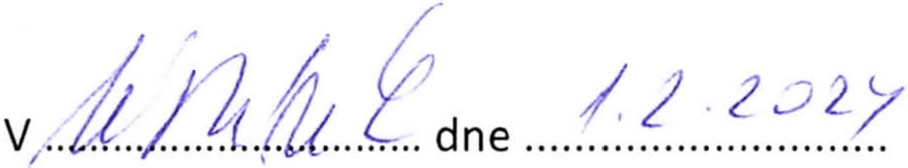 V ........ dne 1.2.2024